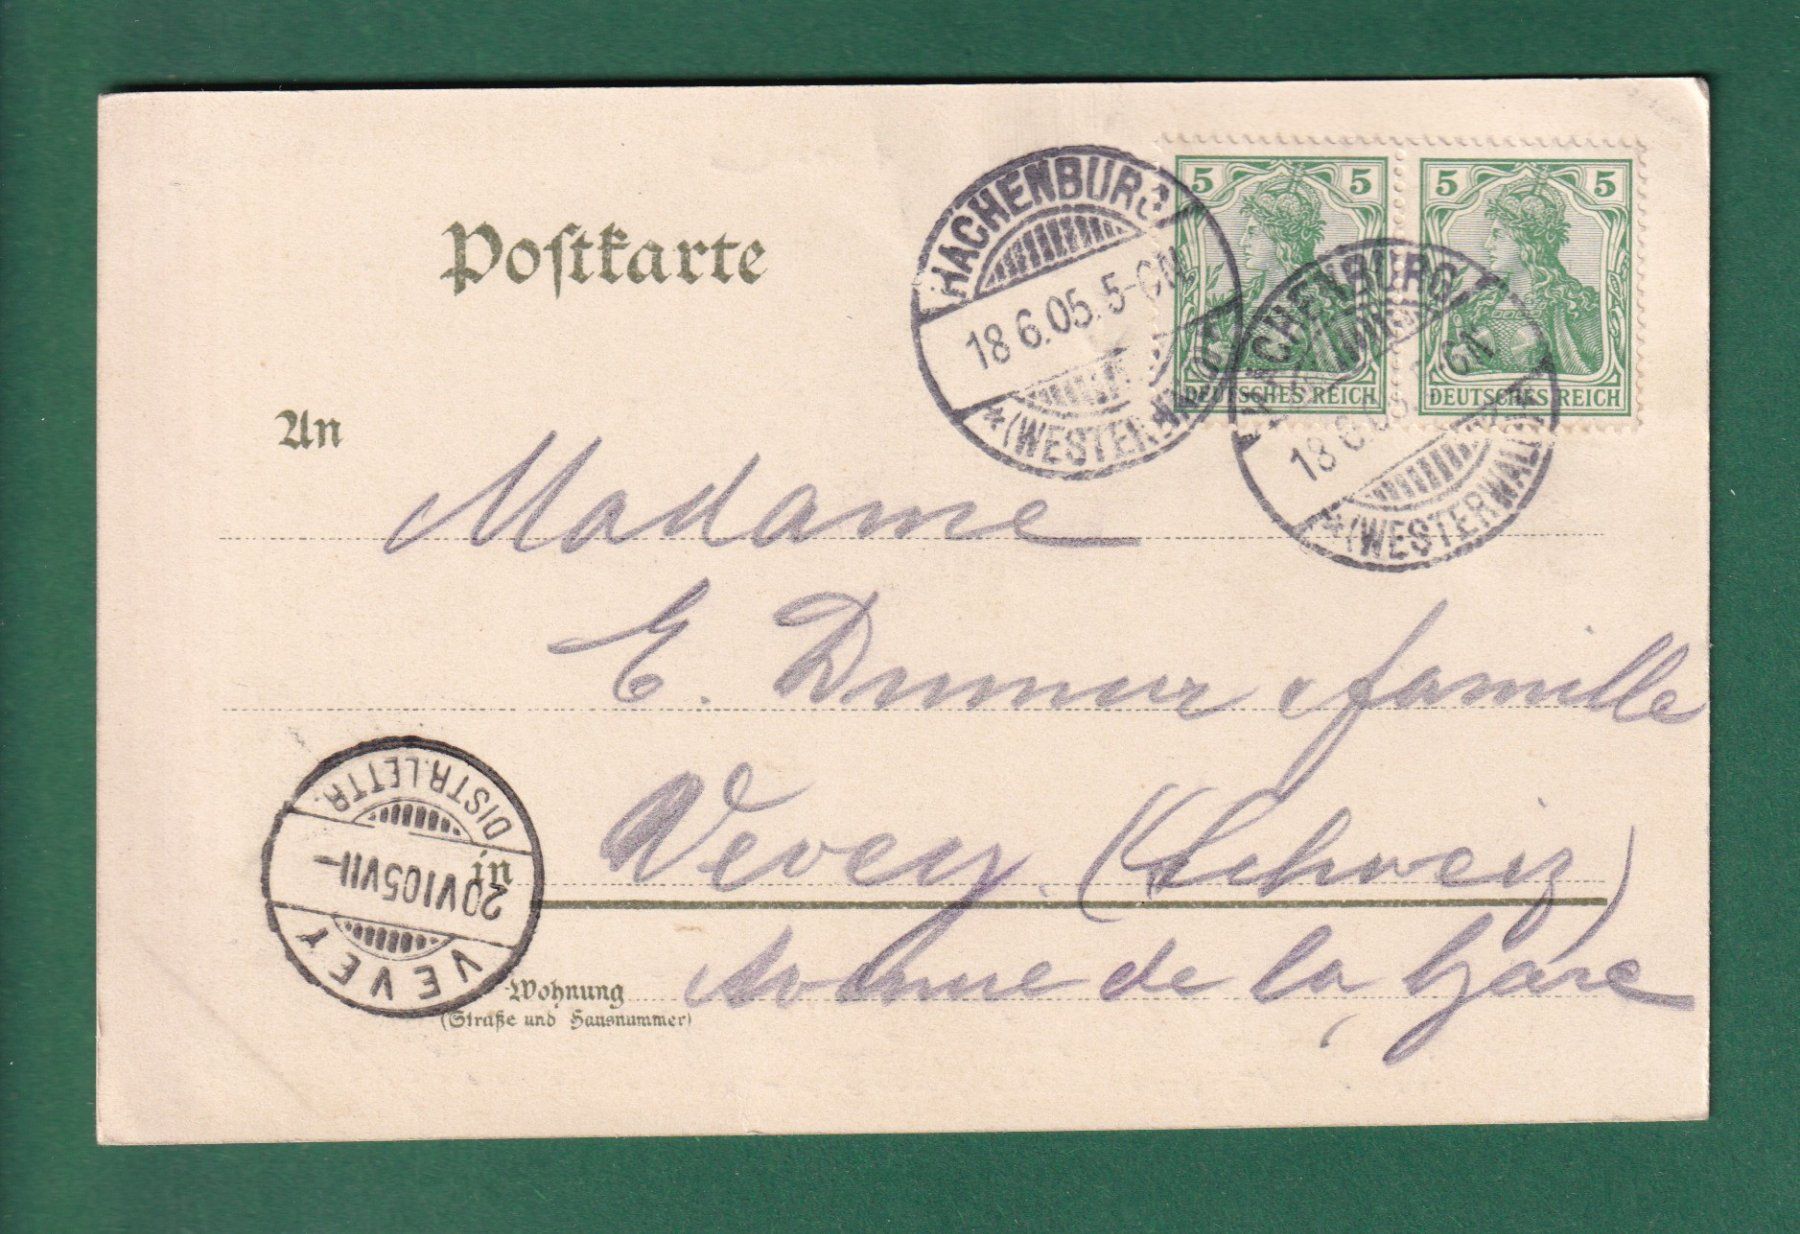 Postkarte
HACHENBURG
18.6.05. 5-6N
*(WESTERWALD)
5 5
DEUTSCHES REICH
5 5
DEUTSCHES REICH
HACHENBURG
18.6.05. 6N
*(WESTERWALD)
An
Madame
E. Dumur & famille
in Vevey. (Schweiz)
Wohnung Avenue de la Gare
(Straße und Hausnummer)
VEVEY
20 VI 05 VII-
DISTR. LETTR.